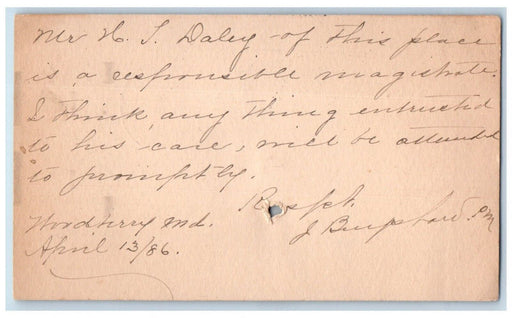 Mr H. S. Daley of this place
is a responsible magistrate.
I think any thing entrusted
to his care, will be attended
to promptly.
Respt.
Woodberry Md. J P.M
April 13/86.